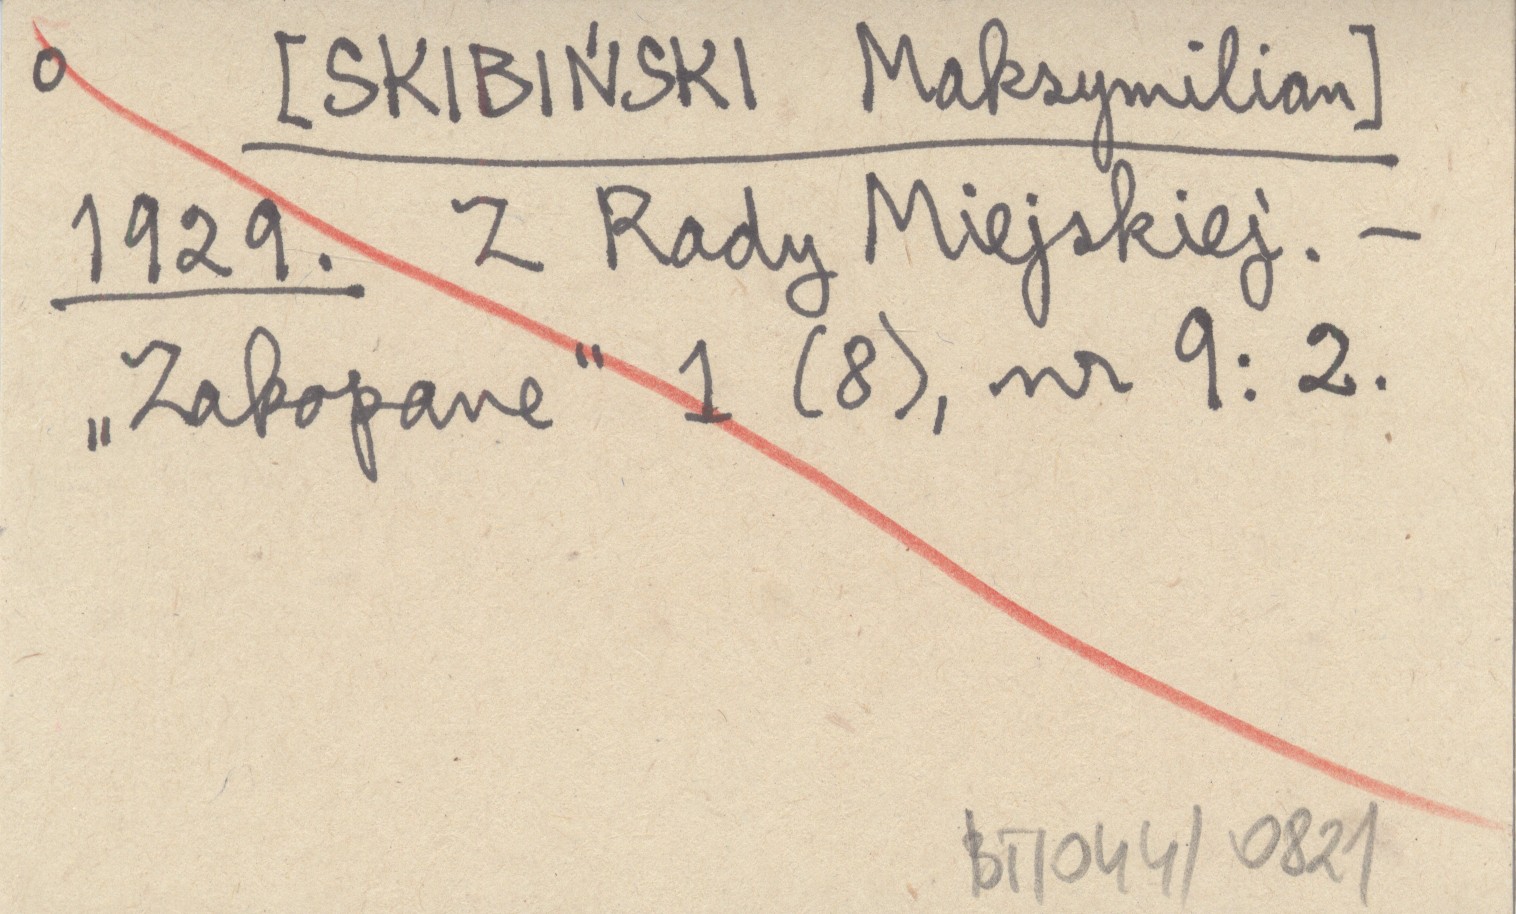 o [SKIBIŃSKI Maksymilian]
1929. Z Rady Miejskiej. –
„Zakopane" 1 (8), nr 9: 2.
BT/044/0821